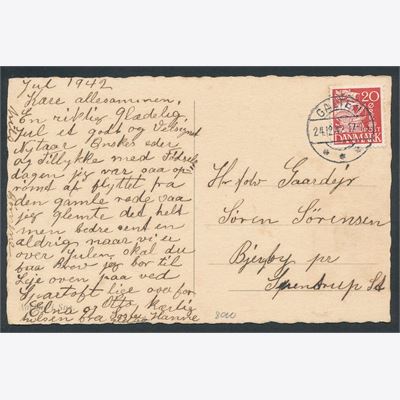 Jul 1942
Kære allesammen,
En rigtig Glædelig
Jul et godt og Velsignet
Nytaar Ønskes eder
og Tillykke med Fødsels
dagen jeg var saa op-
romt af flyttet fra
den gamle rede saa
jeg glemte det helt
men bedre sent en
aldrig, naar vi er
over Julen, skal du
faa Brev jeg bor til
Leje oven paa ved
lige ovre for
Elna og Otto, Kærlig
hilsen fra Hanne
GALTEN
24.12.42
20
DANMARK
Hr. fdv Gaardejr
Søren Sörensen
Bjerby pr
Spentrup St
8000